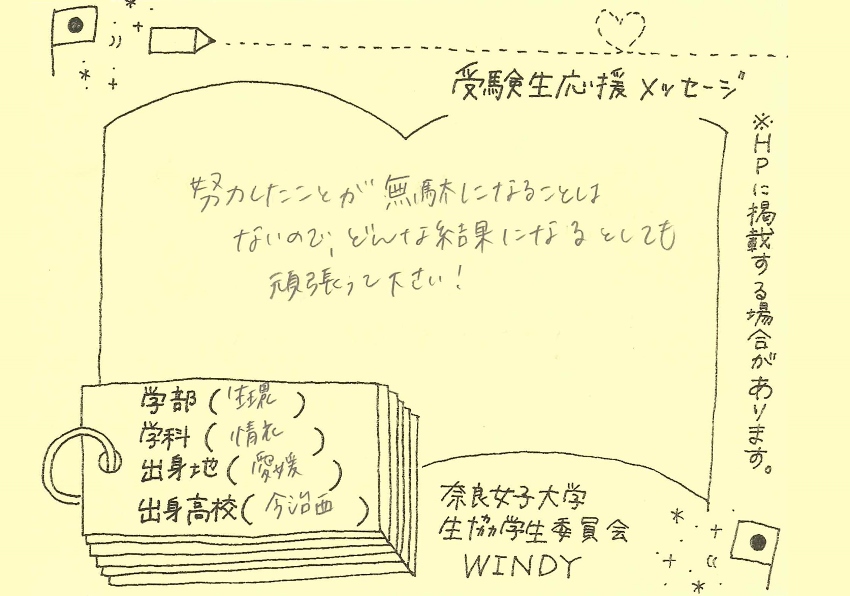 受験生応援メッセージ
※HPに掲載する場合があります。
努力したことが無駄になることは
ないので、どんな結果になるとしても
頑張って下さい！
学部（生環）
学科（情衣）
出身地（愛媛）
出身高校（今治西）
奈良女子大学
生協学生委員会
WINDY